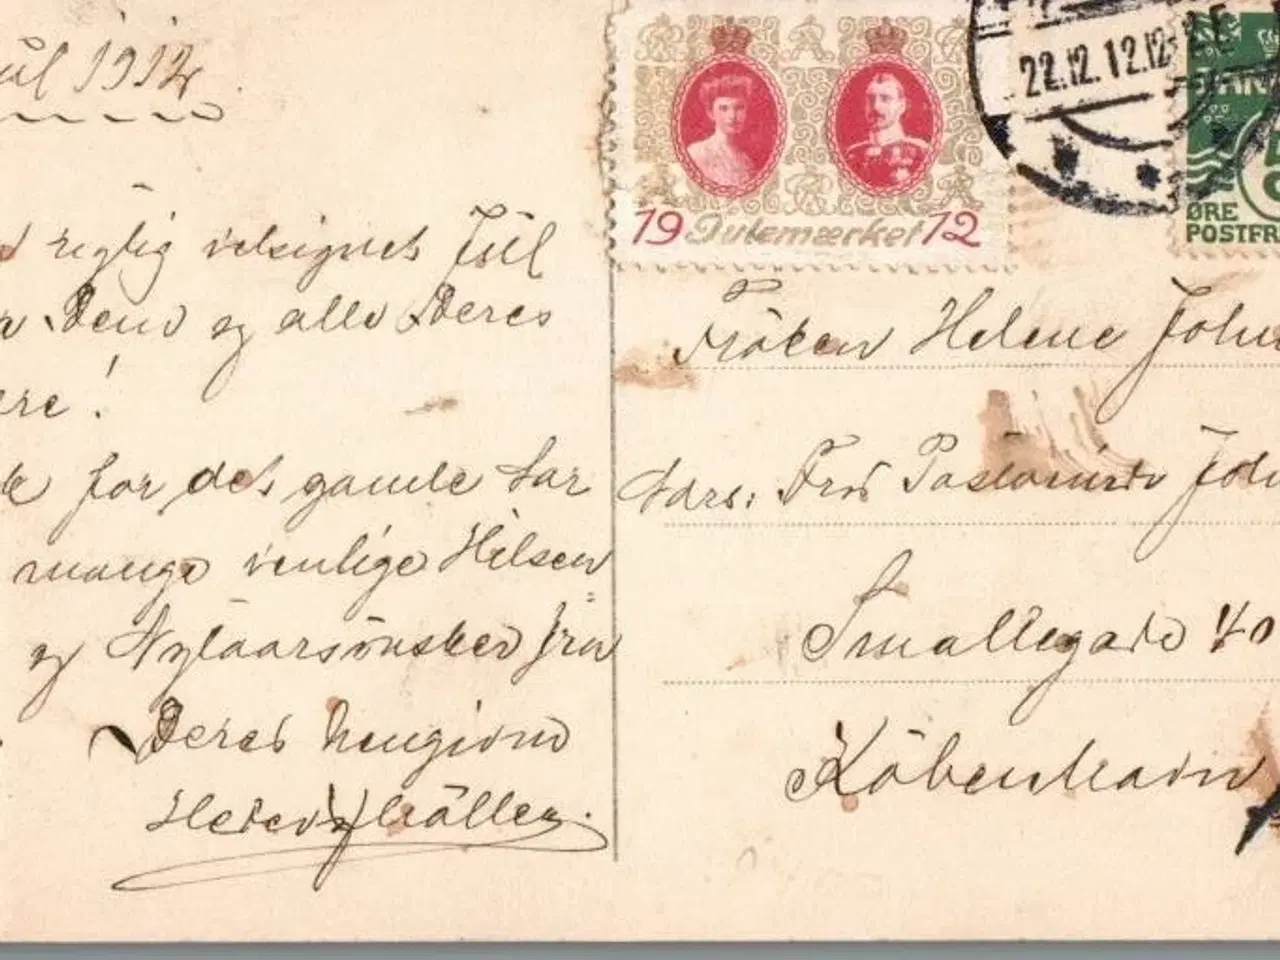 Jul 1912.
rigtig velsignet Jul
Dem og alle Deres
ere!
for det gamle Aar
mange venlige Hilsen
og Nytaarsönsker fra
Deres hengivne
Möller.
19 Julemærket 12
22.12.12.12
ØRE
POSTFR
Fröken Helene Joh
Adrs: Frú Pastorinde Joh
Smallegade 40
Köbenhavn